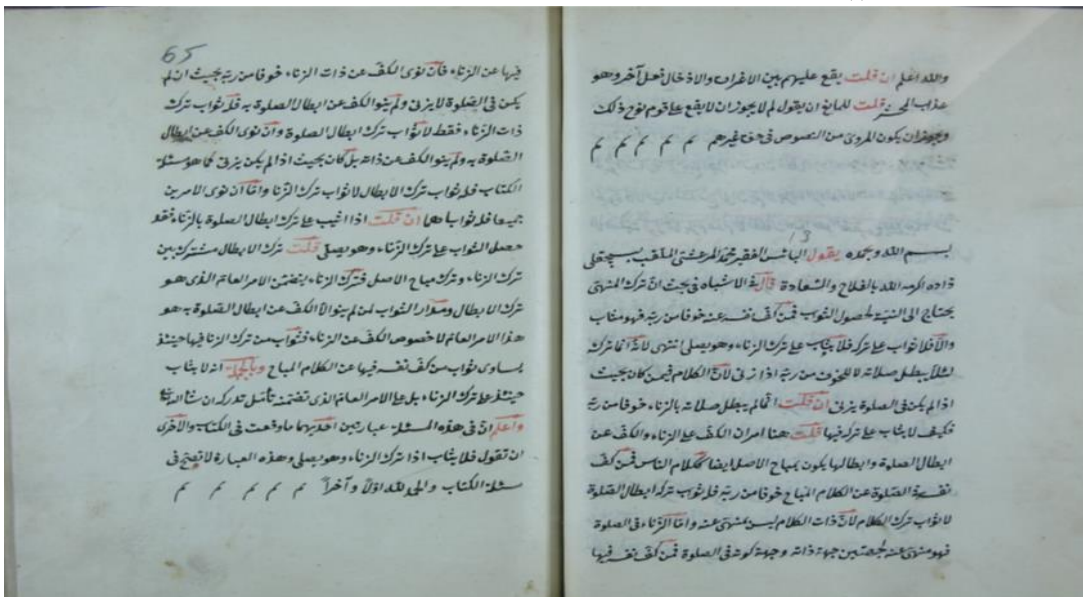 والله اعلم ان قلت يقع عليهم بين الاغراق والادخال فعل آخر وهو
عذاب الحشر قلت للمانع ان يقول لم لا يجوز ان لا يقع على قوم نوح ذلك
ويجوز ان يكون المروى من النصوص فى حق غيرهم م م م م م
13
بسم الله وبحمده يقول البائس الفقير محمد المرعشى الملقب بسچقلى
زاده اكرمه الله بالفلاح والسعادة قال فى الاشباه فى بحث ان ترك المنهى
يحتاج الى النية لحصول الثواب فمن كف نفسه عنه خوفا من ربه فهو مثاب
والا فلا ثواب على تركه فلا يثاب على ترك الزناء وهو يصلى انتهى لانه انما تركه
لئلا يبطل صلاته لا للخوف من ربه اذا زنى لان الكلام فيمن كان بحيث
اذا لم يكن فى الصلوة يزنى ان قلت انما لم يبطل صلاته بالزناء خوفا من ربه
فكيف لا يثاب على تركه فيها قلت هنا امران الكف عن الزناء والكف عن
ابطال الصلوة وابطالها يكون بمباح الاصل ايضا ككلام الناس فمن كف
نفسه فى الصلوة عن الكلام المباح خوفا من ربه فله ثواب تركه ابطال الصلوة
لا ثواب ترك الكلام لان ذات الكلام ليس بمنهى عنه واما الزناء فى الصلوة
فهو منهى عنه بجهتين جهة ذاته وجهة كونه فى الصلوة فمن كف نفسه فيها
65
فيها عن الزناء فان نوى الكف عن ذات الزناء خوفا من ربه بحيث ان لم
يكن فى الصلوة لا يزنى ولم ينو الكف عن ابطال الصلوة به فله ثواب ترك
ذات الزناء فقط لا ثواب ترك ابطال الصلوة وان نوى الكف عن ابطال
الصلوة به ولم ينو الكف عن ذاته بل كان بحيث اذا لم يكن يزنى كما هو مسئلة
الكتاب فله ثواب ترك الابطال لا ثواب ترك الزنا واما ان نوى الامرين
جميعا فله ثوابا هما ان قلت اذا اثيب على ترك ابطال الصلوة بالزناء فقد
حصل الثواب على ترك الزناء وهو يصلى قلت ترك الابطال مشترك بين
ترك الزناء وترك مباح الاصل فترك الزناء يتضمن الامر العام الذى هو
ترك الابطال ومدار الثواب لمن لم ينو الا الكف عن ابطال الصلوة به هو
هذا الامر العام لا خصوص الكف عن الزناء فثواب من ترك الزنا فيها حينئذ
يساوى ثواب من كف نفسه فيها عن الكلام المباح وبالجملة انه لا يثاب
حينئذ على ترك الزناء بل على الامر العام الذى تضمنه تأمل تدركه ان شاء الله
واعلم ان فى هذه المسئلة عبارتين احديهما ما وقعت فى الكتاب والاخرى
ان تقول فلا يثاب اذا ترك الزناء وهو يصلى وهذه العبارة لا تصح فى
مسئلة الكتاب والحمد لله اولا وآخرا م م م م م